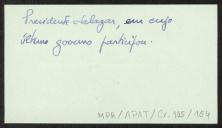 Presidente Salazar, em cujo
último governo participou.
MPR/APAT/Cr. 195/154